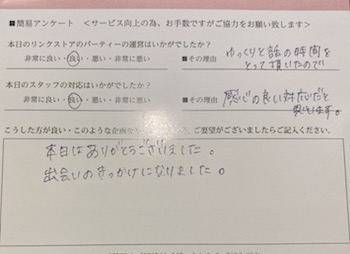 ■簡易アンケート <サービス向上の為、お手数ですがご協力をお願い致します>
本日のリンクストアのパーティーの運営はいかがでしたか?
非常に良い・良い・悪い・非常に悪い ■その理由 ゆっくりと話の時間を
とって頂いたので
本日のスタッフの対応はいかがでしたか?
非常に良い・良い・悪い・非常に悪い ■その理由 感じの良い対応だと
思います。
こうした方が良い・このような企画 ご要望がございましたらご記入ください。
本日はありがとうございました。
出会いのきっかけになりました。